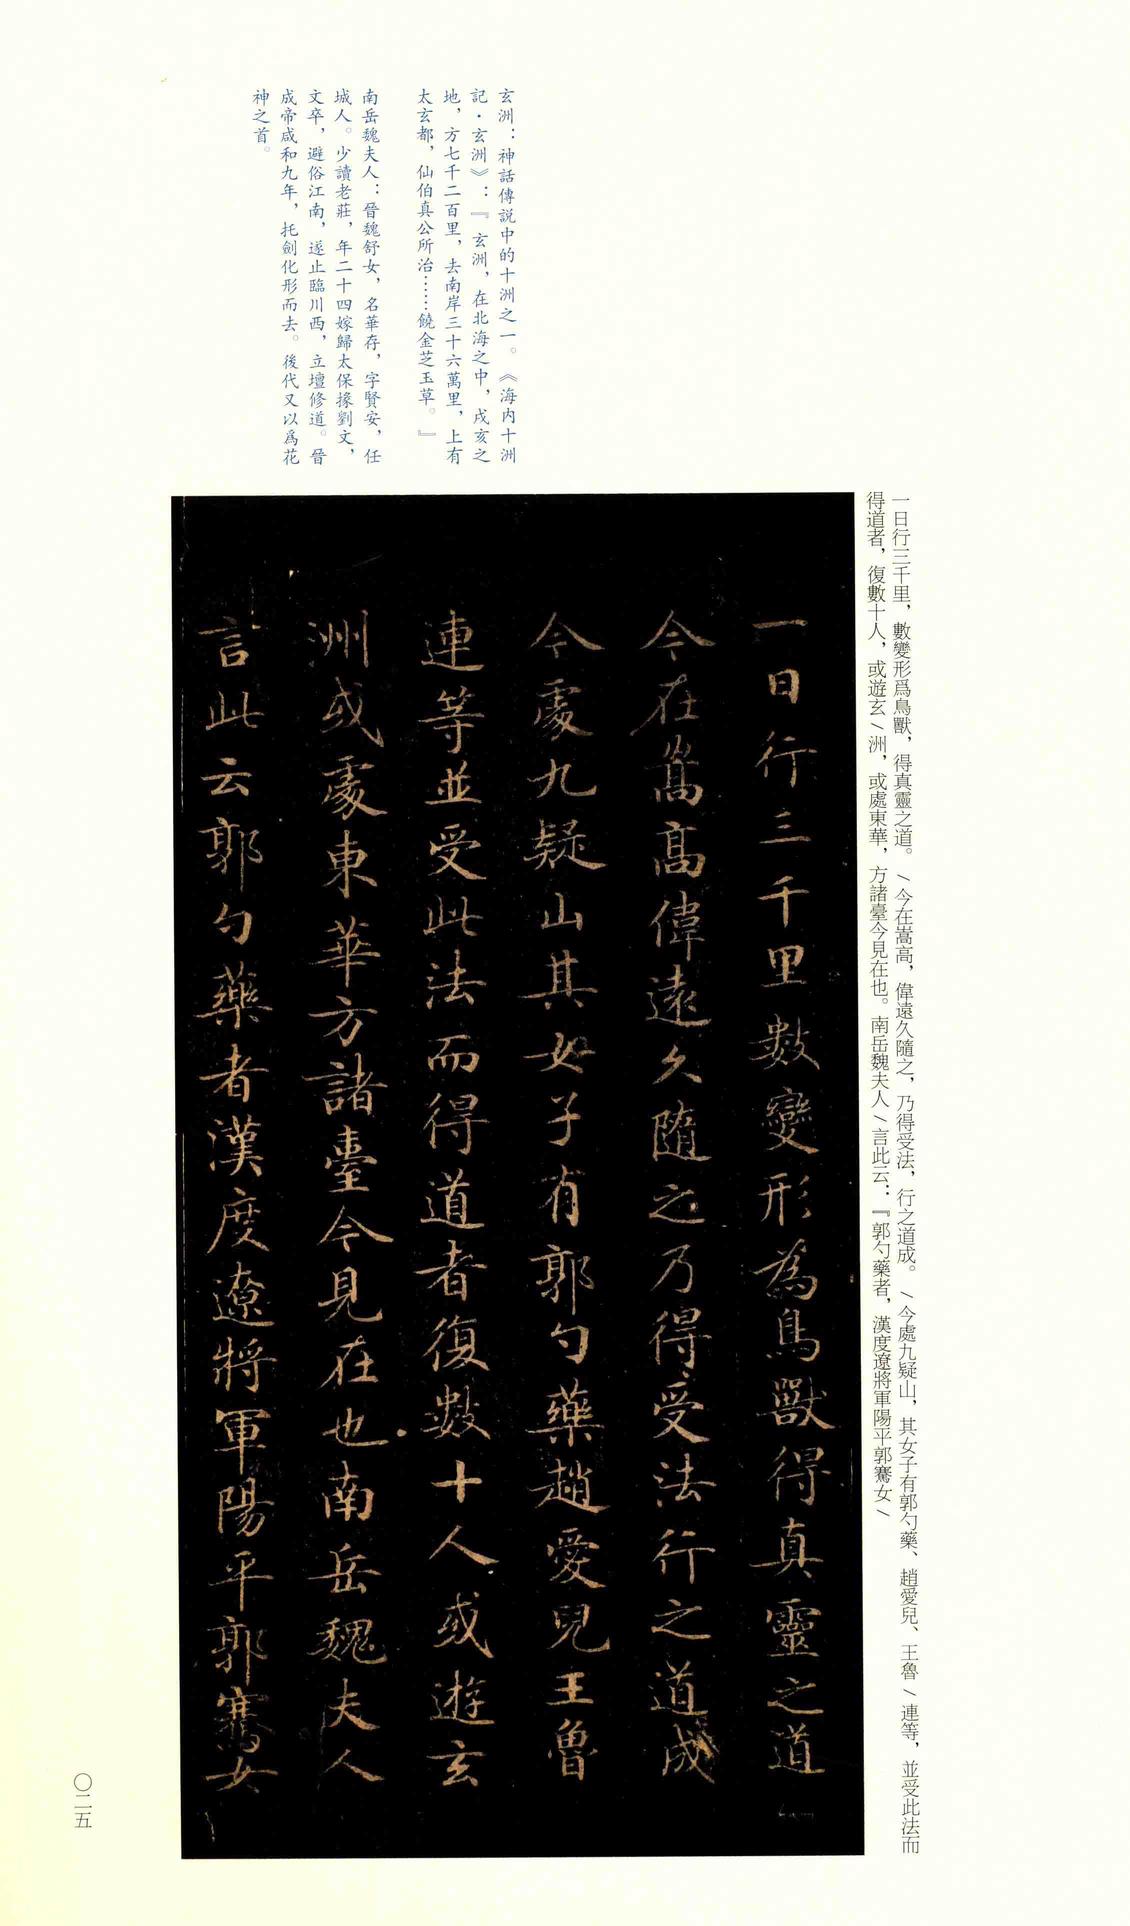 玄洲：神話傳説中的十洲之一。《海内十洲
記·玄洲》：『玄洲，在北海之中，戌亥之
地，方七千二百里，去南岸三十六萬里，上有
太玄都，仙伯真公所治……饒金芝玉草。』
南岳魏夫人：晉魏舒女，名華存，字賢安，任
城人。少讀老莊，年二十四嫁歸太保掾劉文，
文卒，避俗江南，遂止臨川西，立壇修道。晉
成帝咸和九年，托劍化形而去。後代又以爲花
神之首。
一日行三千里，數變形爲鳥獸，得真靈之道。\今在嵩高，偉遠久隨之，乃得受法，行之道成。\今處九疑山，其女子有郭勺藥、趙愛兒、王魯\連等，並受此法而
得道者，復數十人，或遊玄\洲，或處東華，方諸臺今見在也。南岳魏夫人\言此云：『郭勺藥者，漢度遼將軍陽平郭騫女\
一日行三千里數變形為鳥獸得真靈之道
今在嵩高偉遠久隨之乃得受法行之道成
今處九疑山其女子有郭勺藥趙愛兒王魯
連等並受此法而得道者復數十人或遊玄
洲或處東華方諸臺今見在也南岳魏夫人
言此云郭勺藥者漢度遼將軍陽平郭騫女
〇二五